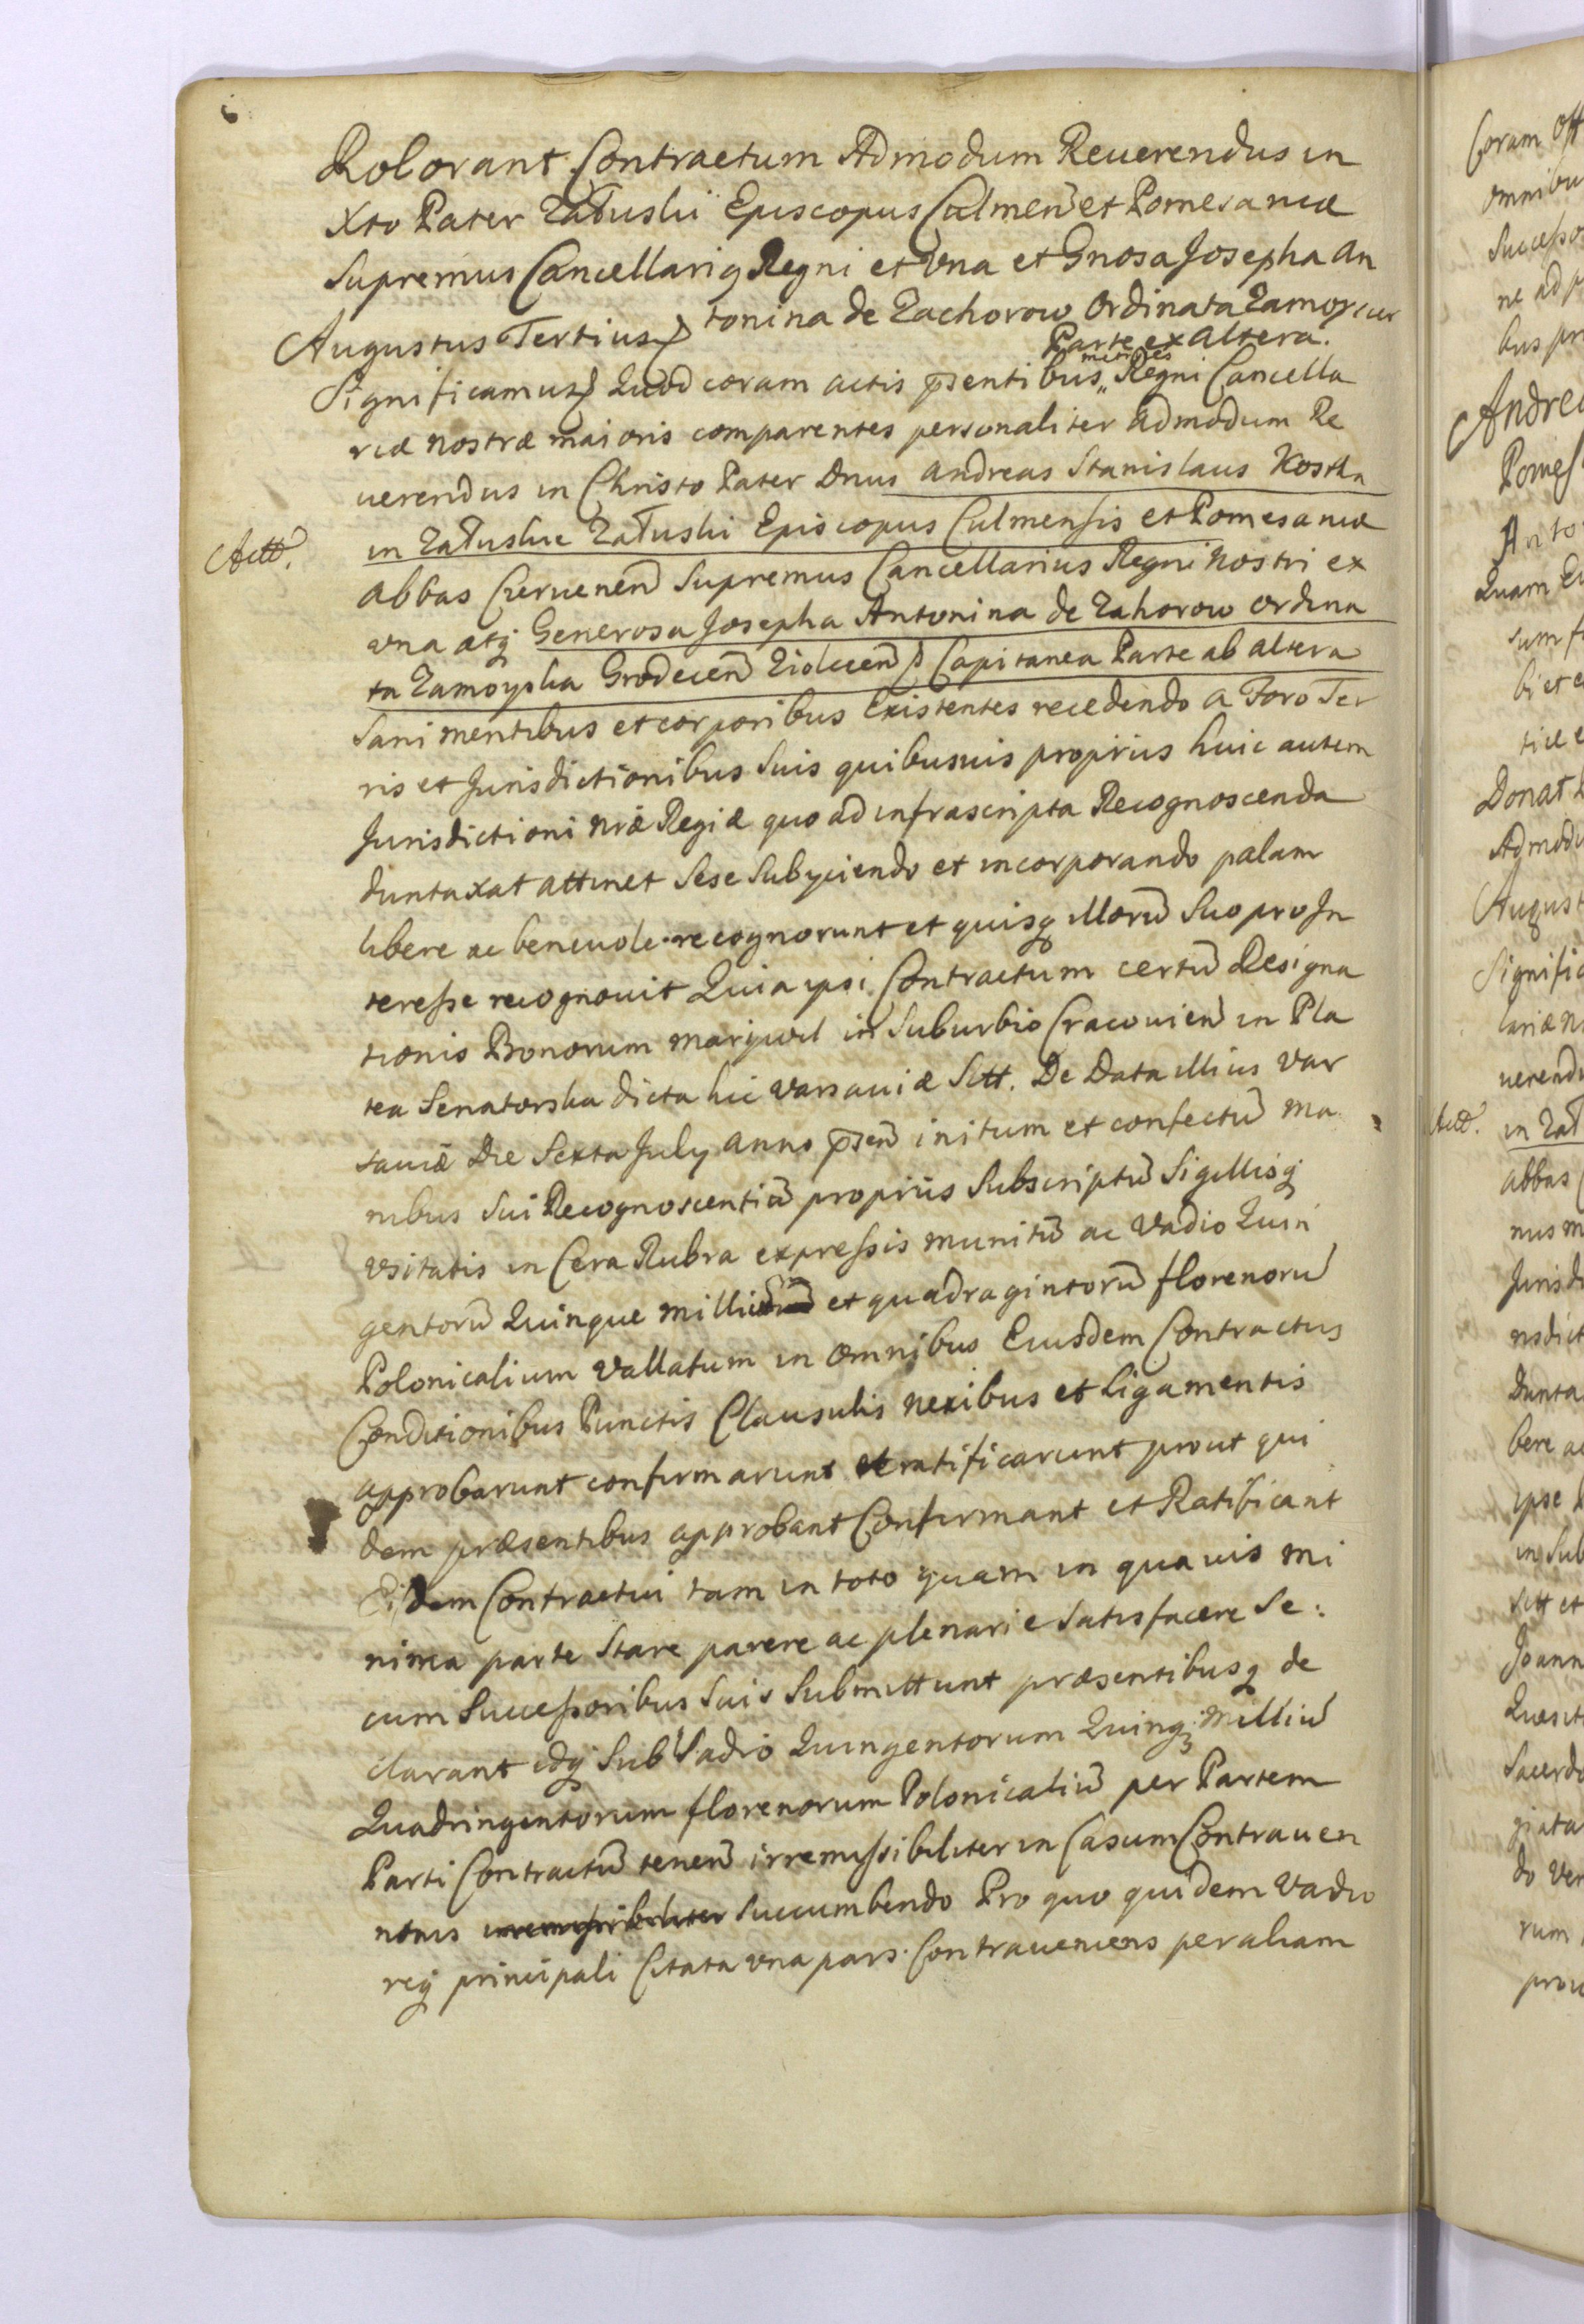 6
Roborant Contractum Admodum Reuerendus in
Xto Pater Załuski Episcopus Culmen̄ et Pomesaniæ
Supremus Cancellariꝯ Regni et Vna et Gnosa Josepha An
tonina de Zachorow Ordinata Zamoyscie
Parte ex altera.
Augustus Tertius
Significamus Quod coram actis p̄sentibus Regni Cancella
riæ nostræ maioris comparentes personaliter admodum Re
uerendus in Christo Pater Dnus Andreas Stanislaus Kostka
Actt.
in Załuskie Załuski Episcopus Culmensis et Pomesaniæ
abbas Czeruenen̄ Supremus Cancellarius Regni nostri ex
vna atq̨ Generosa Josepha Antonina de Zahorow ordina
ta Zamoyska Grodecen̄ Ziolecen̄ Capitanea Parte ab altera
Sani mentibus et corporibus Existentes recedendo a Foro Ter
ris et Jurisdictionibus Suis quibusuis proprius huic autem
Jurisdictioni nr̄æ Regiæ quo ad infrascripta Recognoscenda
duntaxat attinet Sese Subyciendo et incorporando palam
libere ac beneuole recognorunt et quisq̨ illorū Suo pro In
teresse recognouit Quia ipsi Contractum certū Designa
tionis Bonorum marywil in Suburbio Cracouien̄ in Pla
tea Senatorska dicta hic Varsauiæ Sitt. De Data illius Var
sauiæ Die Sexta July Anno p̄sen̄ initum et confectū ma
nibus Sui Recognoscentiū propriis Subscriptū Sigillisq̨
vsitatis in Cera Rubra expressis munitū ac Vadio Quin
gentorū Quinque milliū et quadragintorū florenorū
Polonicalium Vallatum in omnibus Eiusdem Contractus
Conditionibus Punctis Clausulis nexibus et Ligamentis
approbarunt confirmarunt et ratificarunt prout qui
dem præsentibus approbant Confirmant et Ratificant
Eidem Contractui tam in toto quam in quauis mi
nima parte Stare parere ac plenarie Satisfacere Se:
cum Successoribus Suis Submittunt præsentibusq̨ de
clarant idq̨ Sub Vadio Quingentorum Quinq̨ Milliū
Quadringentorum florenorum Polonicaliū per Partem
Parti Contractū tenen̄ irremissibiliter in Casum Contrauen
tionis irremissibiliter succumbendo Pro quo quidem Vadio
req̨ principali Citata vna pars Contraueniens per aliam